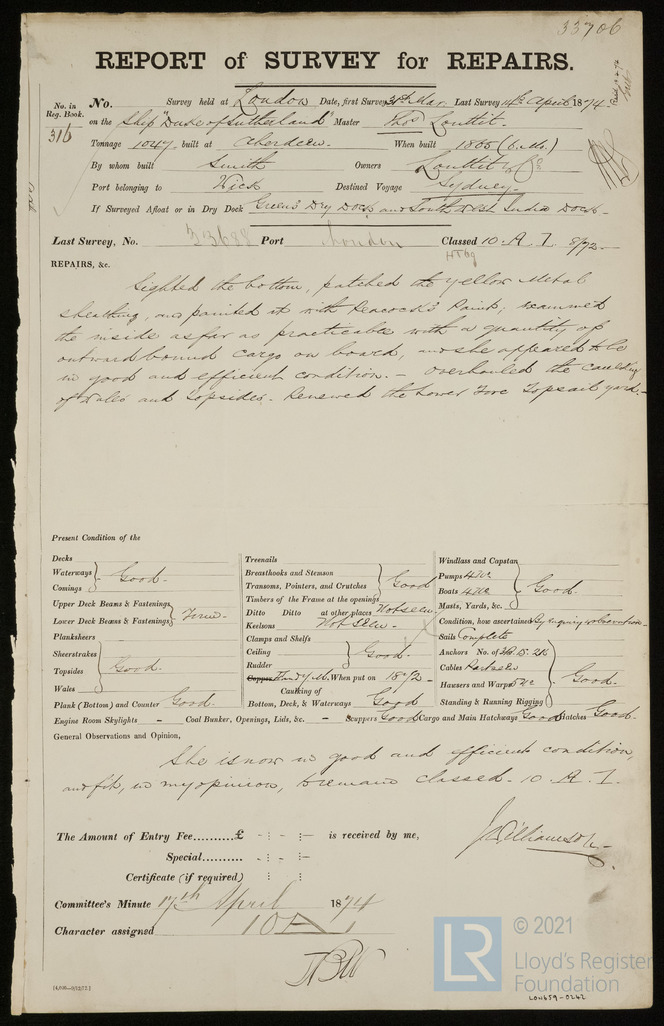 33706
REPORT of SURVEY for REPAIRS.
No. in Reg. Book. No. Survey held at London Date, first Survey 31st Mar. Last Survey 14th April 1874.
316 on the Ship "Duke of Sutherland" Master Thos Louttit.
Tonnage 1047 built at Aberdeen. When built 1865 (6.Mo.)
By whom built Smith Owners Louttit & Co
Port belonging to Wick Destined Voyage Sydney.
If Surveyed Afloat or in Dry Dock Green's Dry Dock and South West India Dock.
Last Survey, No. 33688 Port London Classed 10. A. 1. 8/72
REPAIRS, &c.
Sighted the bottom, patched the yellow Metal
sheathing, and painted it with Peacock's Paint; examined
the inside as far as practicable with a quantity of
outward bound cargo on board, and she appeared to be
in good and efficient condition. – Overhauled the caulking
of Wales and Topsides. Renewed the Lower Fore Topsail yard.
Present Condition of the
Decks
Waterways
Comings
Good.
Upper Deck Beams & Fastenings
Lower Deck Beams & Fastenings
Planksheers
Sheerstrakes
Topsides
Wales
Good.
Plank (Bottom) and Counter Good.
Treenails
Breasthooks and Stemson
Transoms, Pointers, and Crutches
Timbers of the Frame at the openings
Good
Ditto Ditto at other places Not seen
Keelsons Not seen.
Clamps and Shelfs
Ceiling
Rudder
Good.
Copper When put on 1872
Caulking of
Bottom, Deck, & Waterways Good
Windlass and Capstan
Pumps
Boats
Masts, Yards, &c.
Good.
Condition, how ascertained By enquiry & observation
Sails Complete
Anchors No. of
Cables
Hawsers and Warps
Standing & Running Rigging
Good.
Engine Room Skylights – Coal Bunker, Openings, Lids, &c. – Scuppers Good Cargo and Main Hatchways Good Hatches Good.
General Observations and Opinion,
She is now in good and efficient condition,
and fit, in my opinion, to remain classed 10. A. 1.
The Amount of Entry Fee..........£ - : - : - is received by me,
J Williamson
Special.......... : :
Certificate (if required) : :
Committee's Minute 17th April 1874
Character assigned 10 A 1
[4,000—9/12/72.]
LR
© 2021
Lloyd's Register
Foundation
LON659-0262